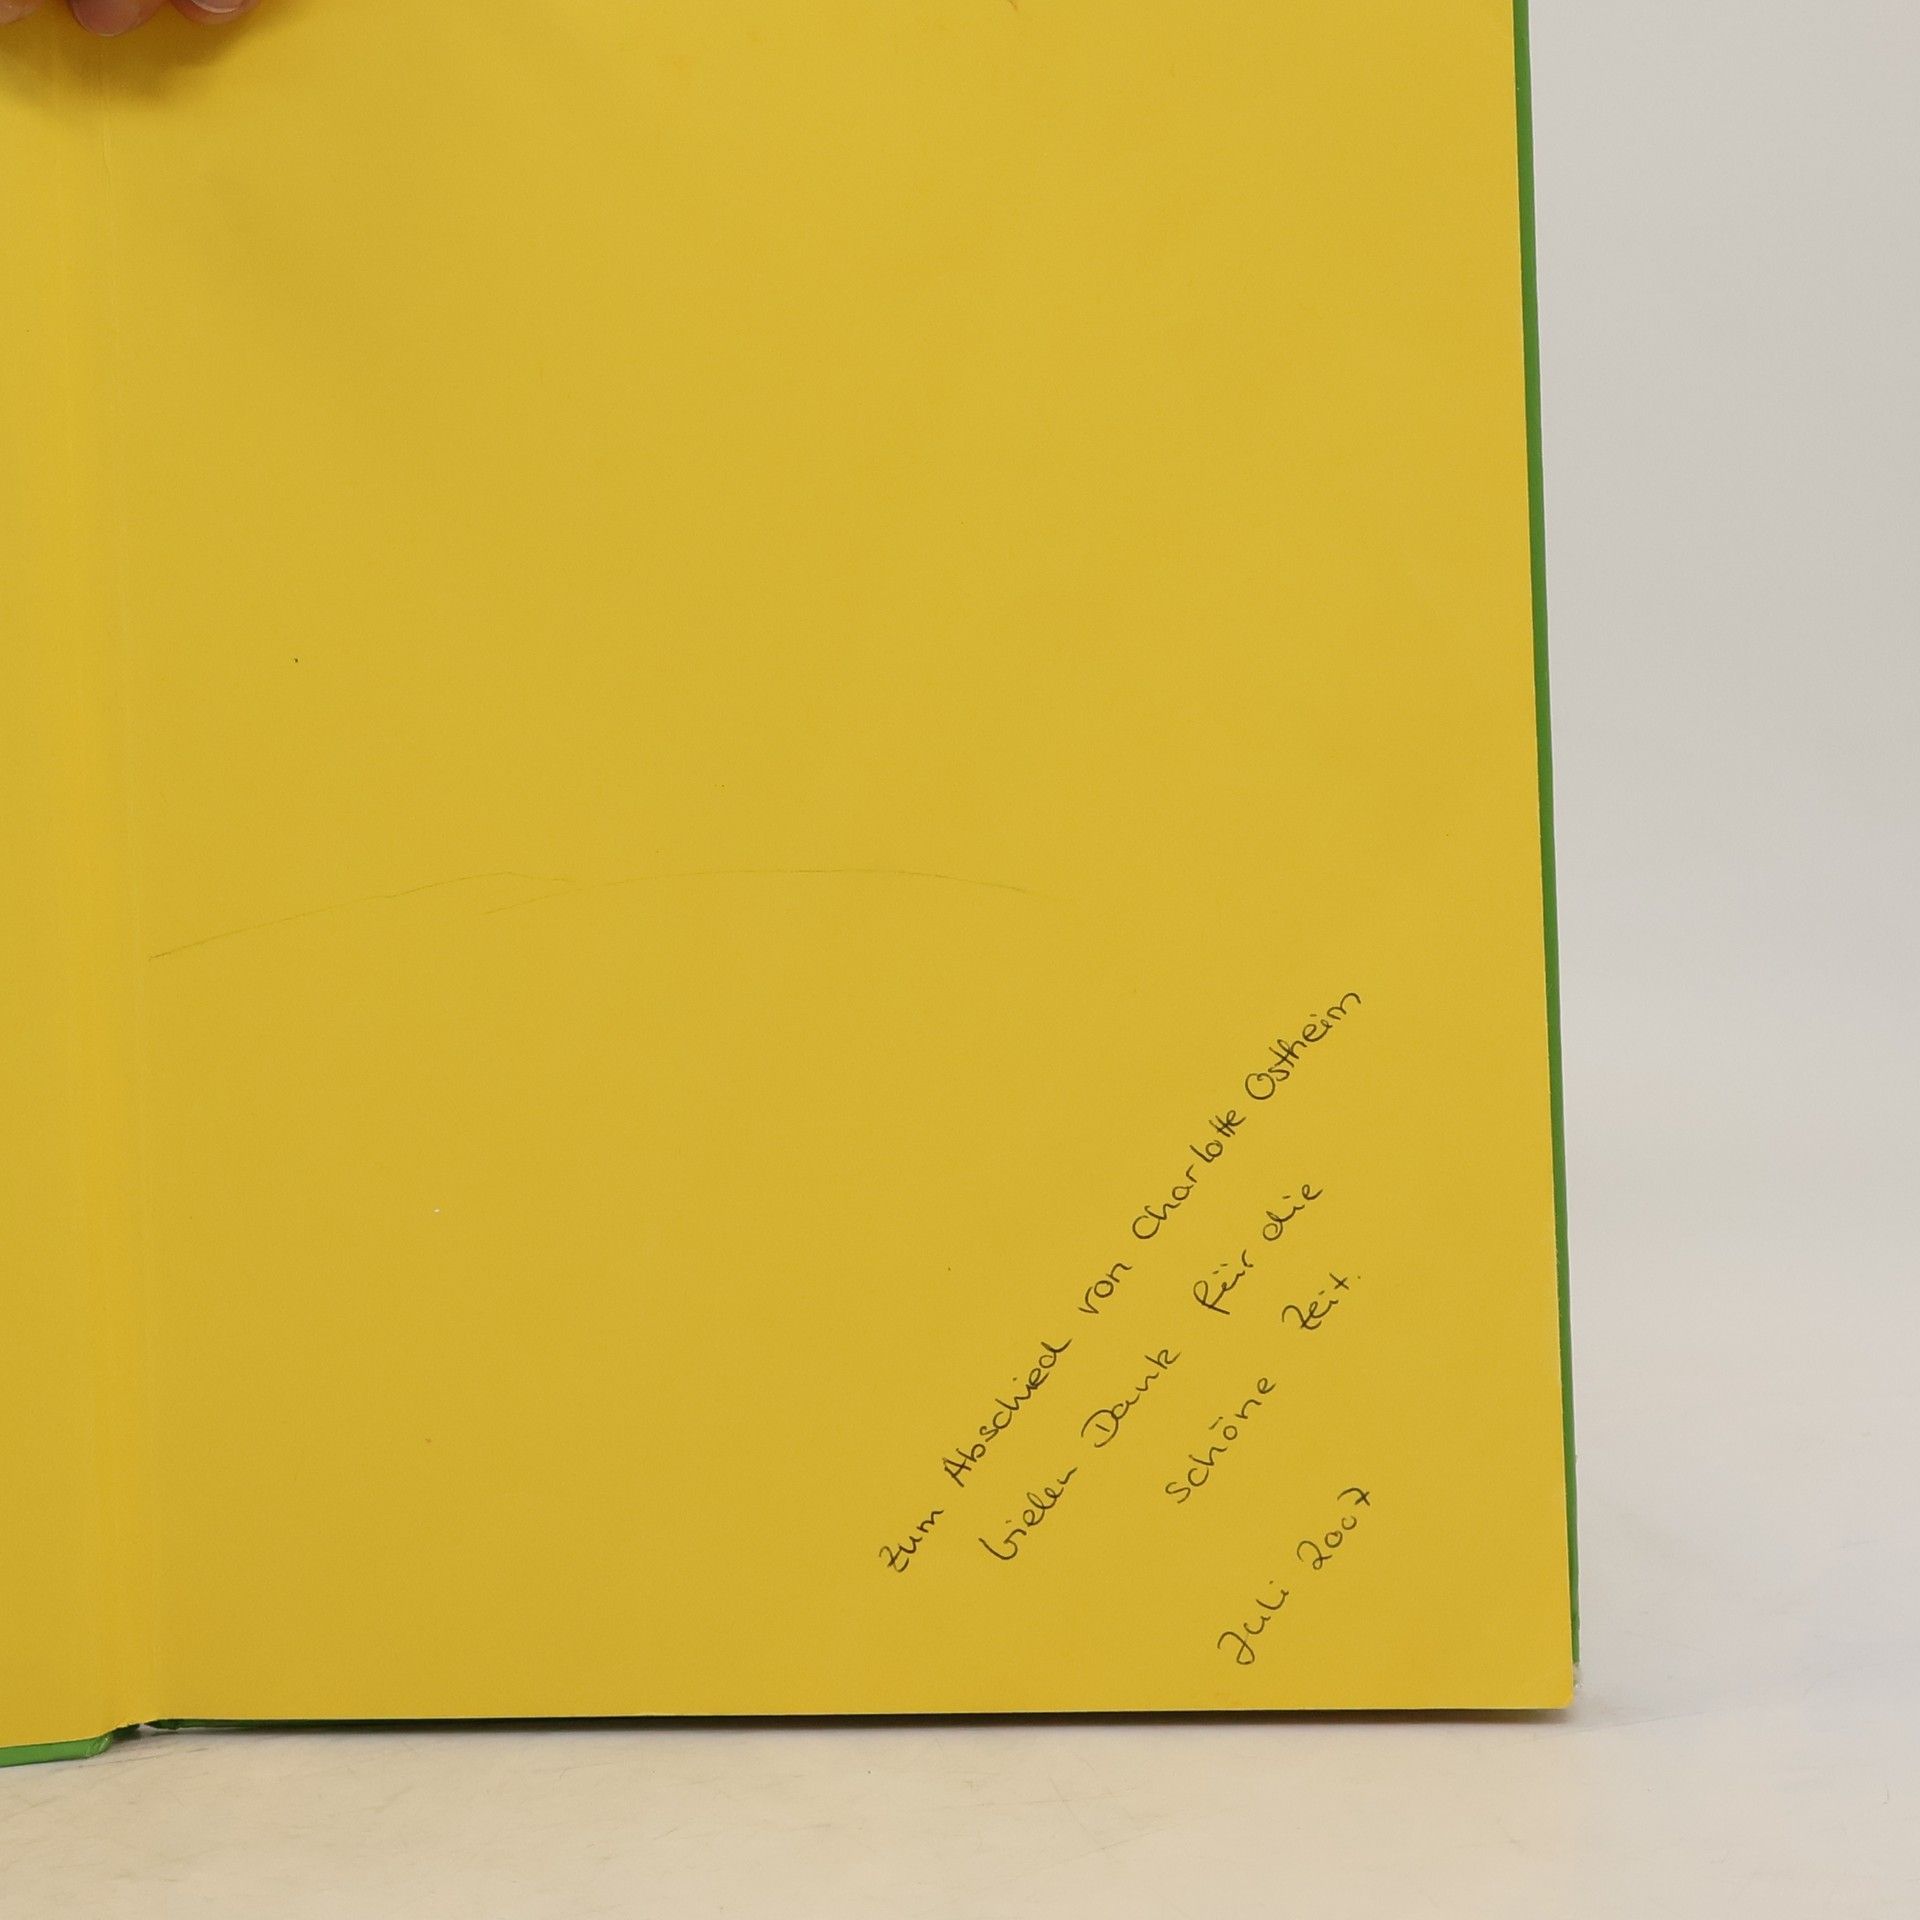 Zum Abschied von Charlotte Ostheim
Vielen Dank für die
schöne Zeit.
Juli 2007